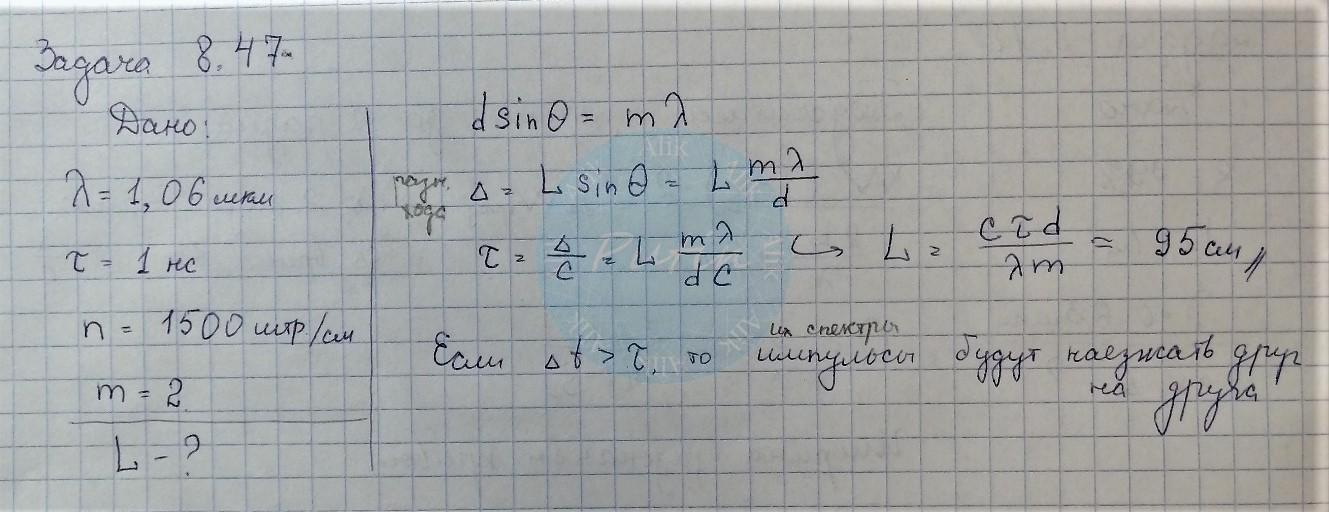 Задача 8.47
Дано:
λ = 1,06 мкм
τ = 1 нс
n = 1500 штр/см
m = 2
L - ?
d sin θ = m λ
разн. хода Δ = L sin θ = L mλ/d
τ = Δ/c = L mλ/dc ↪ L = cτd/λm = 95 см //
Если Δt > τ, то их спектры импульсы будут наезжать друг
на друга
Alik
Purin